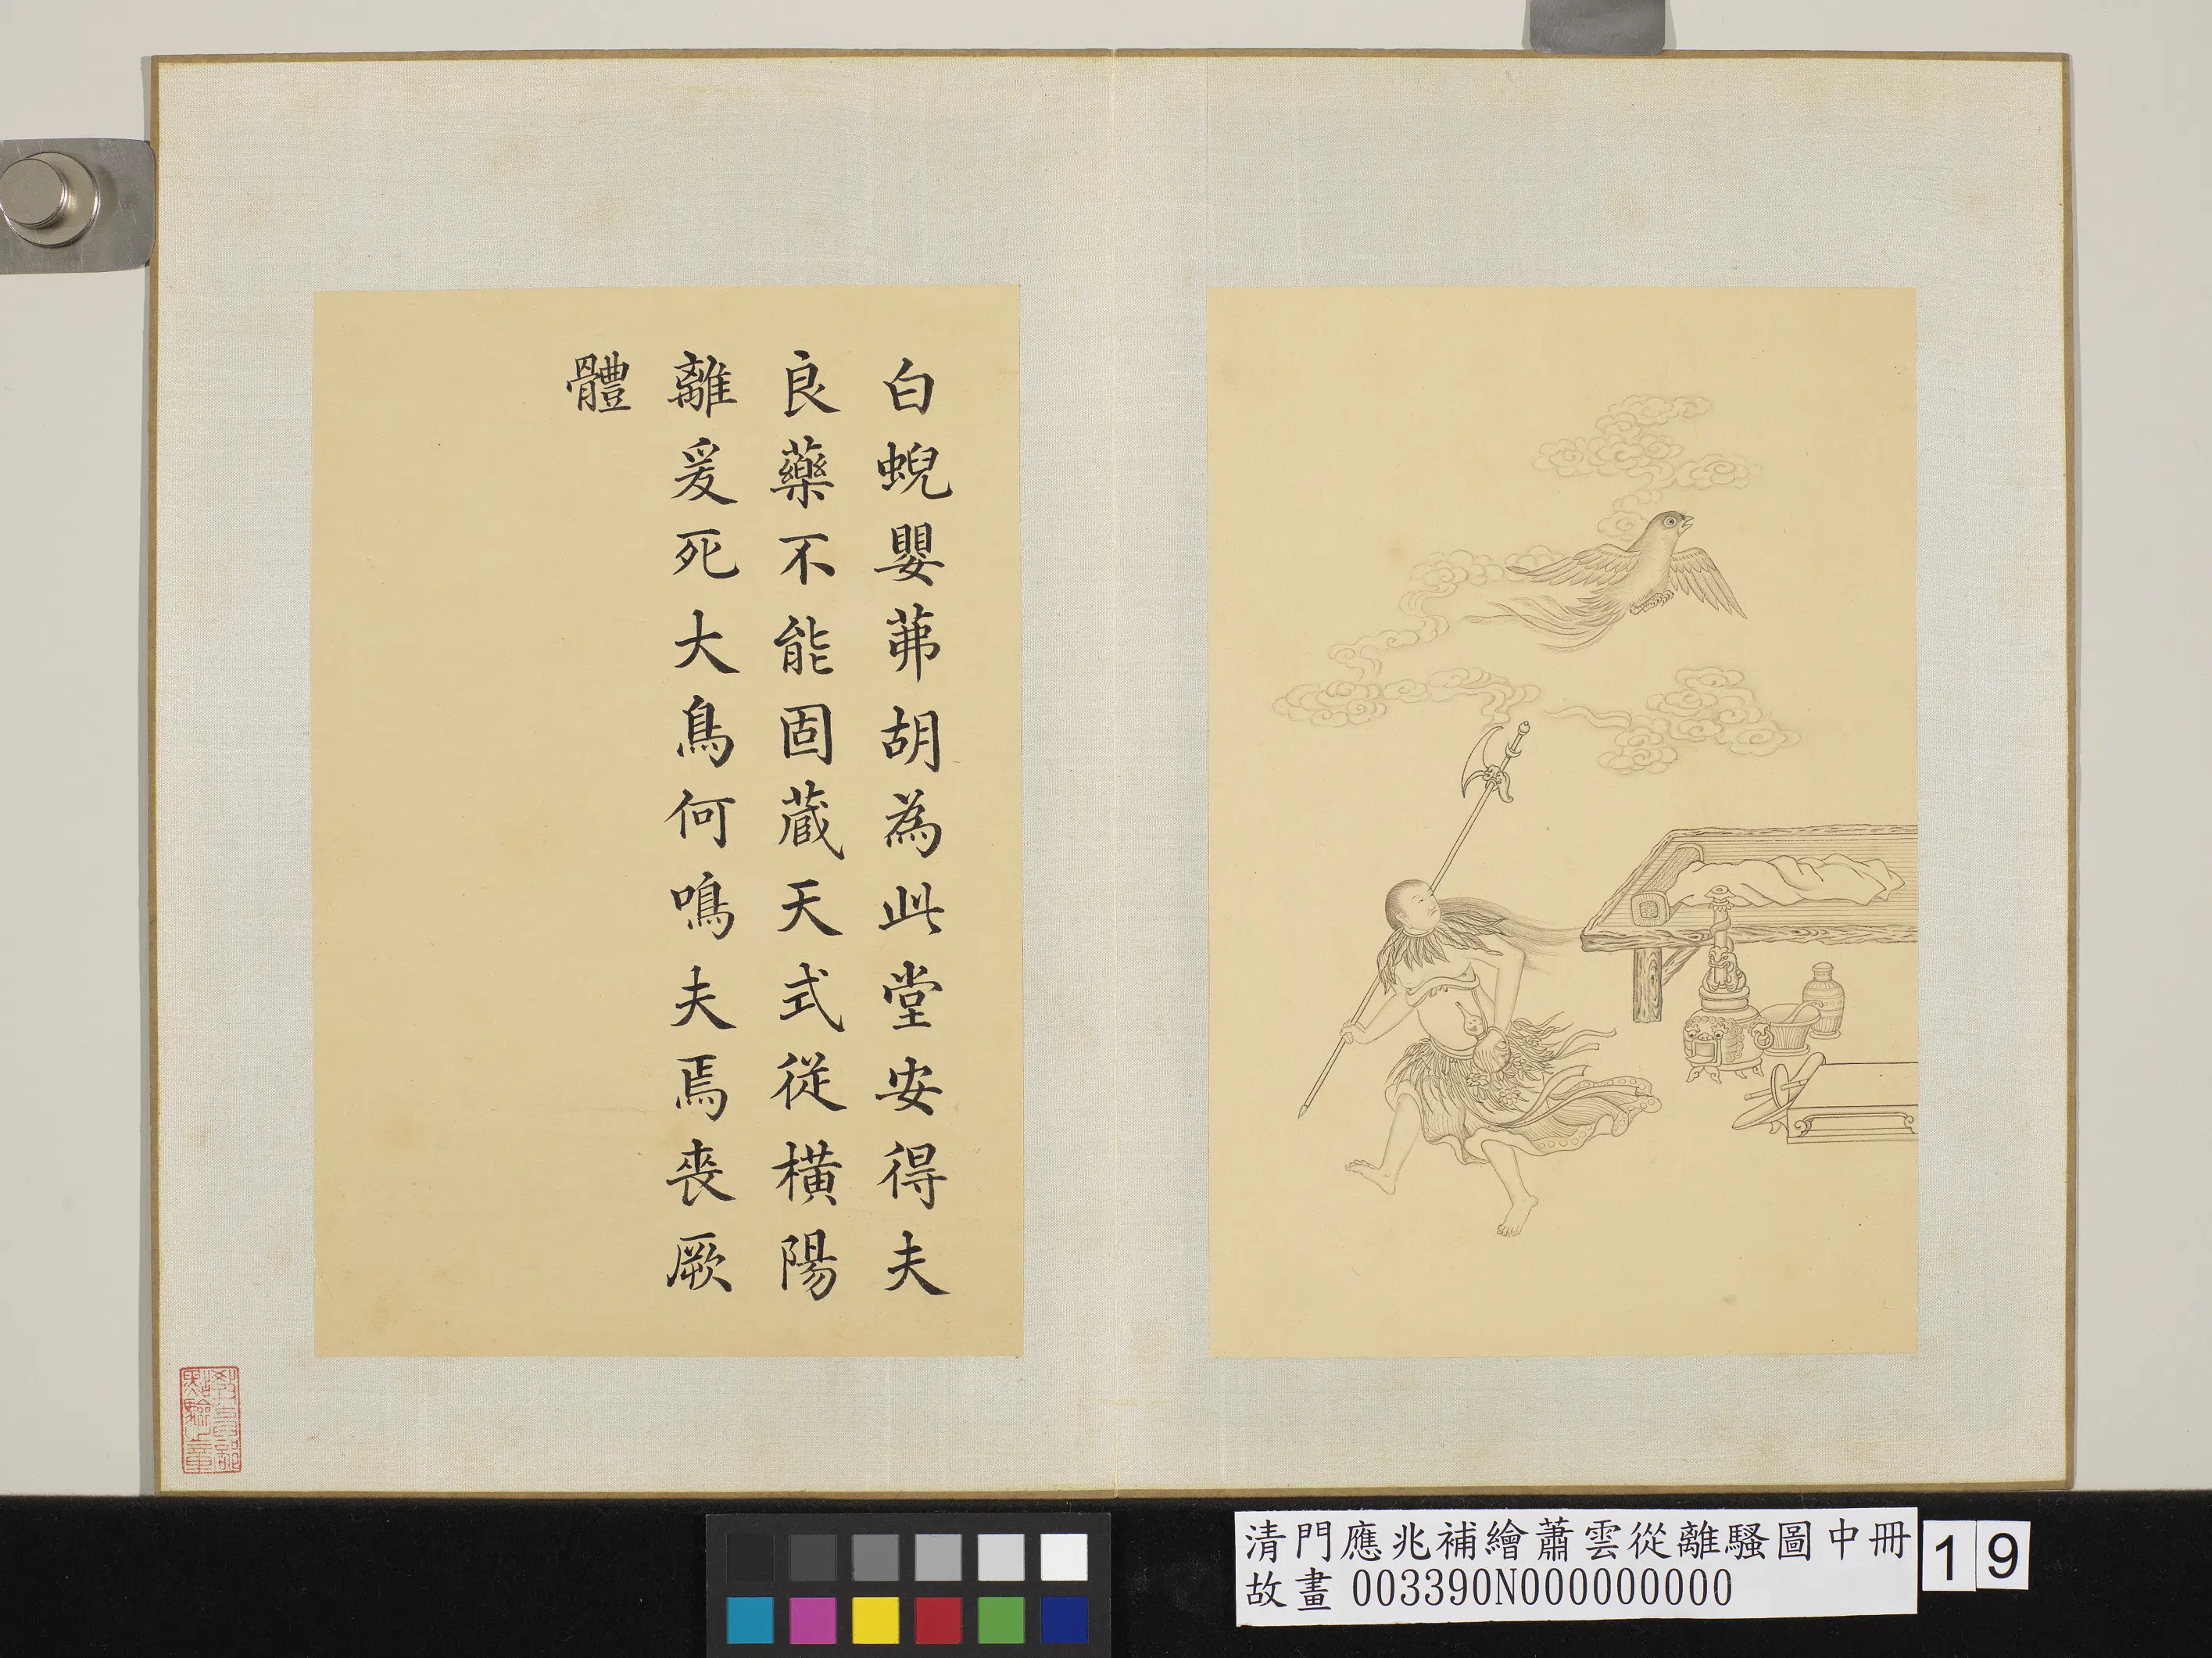 白蜺嬰茀胡為此堂安得夫
良藥不能固藏天式從橫陽
離爰死大鳥何鳴夫焉喪厥
體
教育部
點驗之章
清門應兆補繪蕭雲從離騷圖中冊
故畫 003390N000000000
19